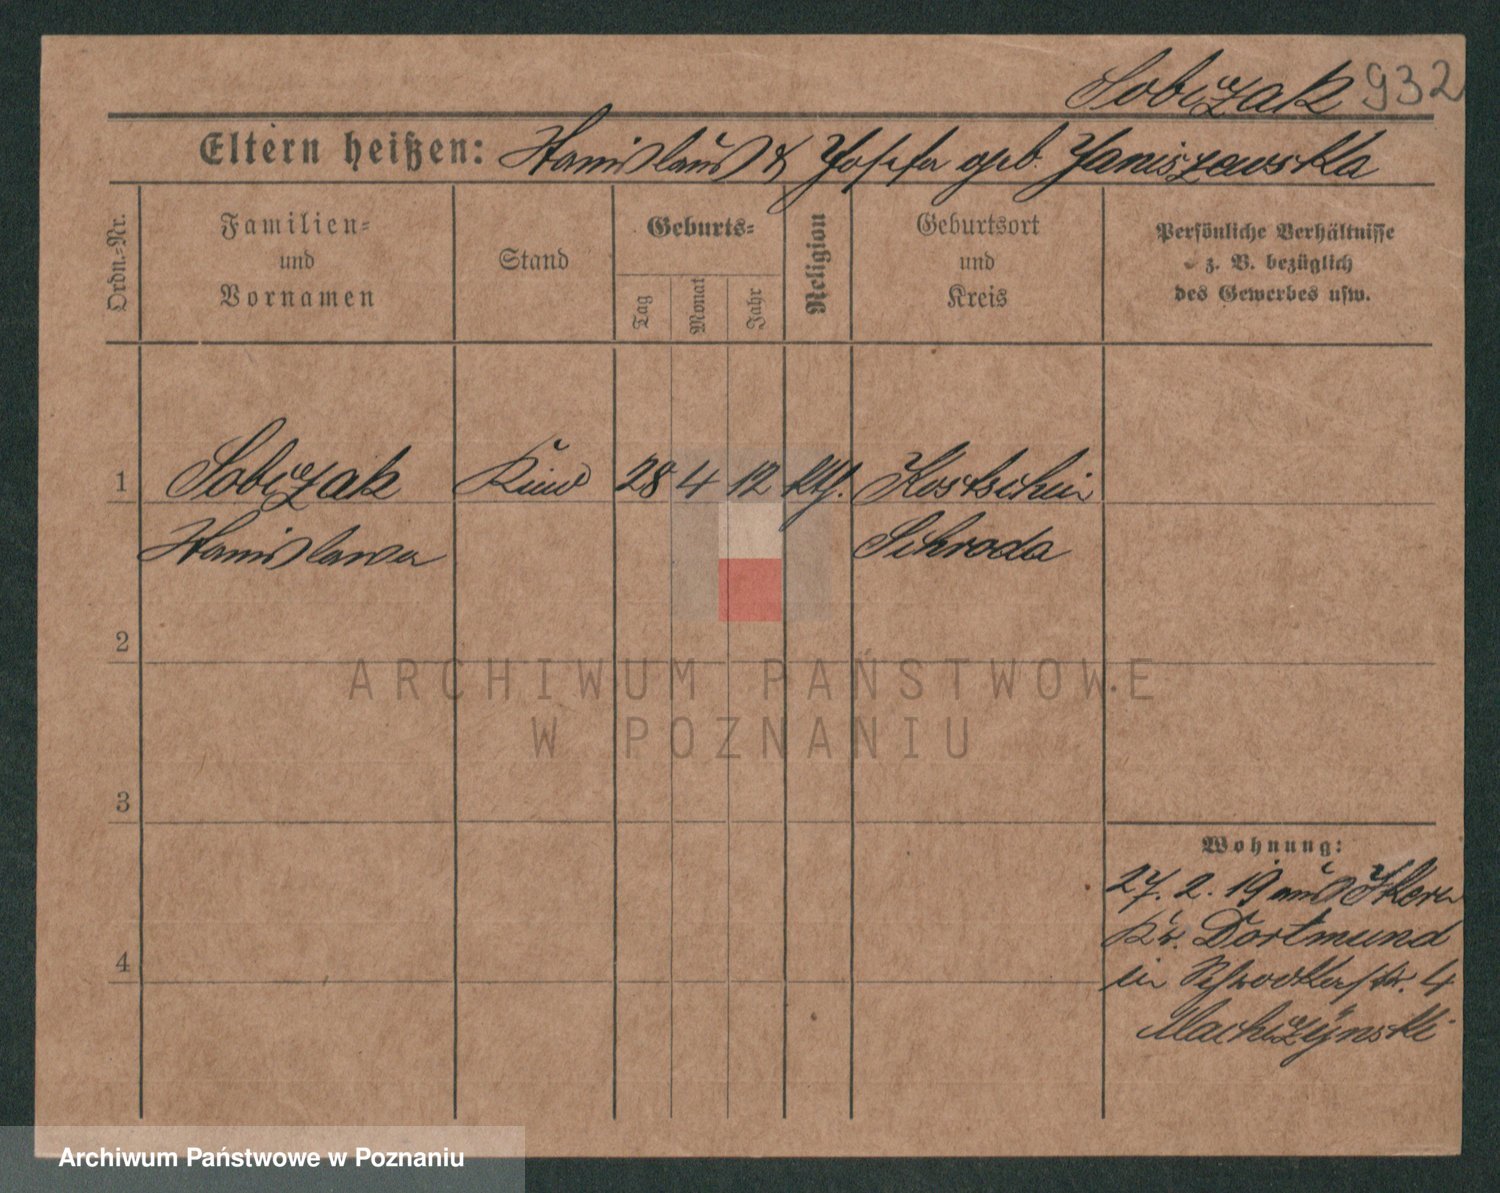 Sobczak 932
Eltern heißen: Stanislaus & Josefa geb. Janiszewska
Ordn.=Nr.
Familien=
und
Vornamen
Stand
Geburts=
Tag
Monat
Jahr
Religion
Geburtsort
und
Kreis
Persönliche Verhältnisse
z. B. bezüglich
des Gewerbes usw.
1 Sobczak Kind 28 4 12 kth. Kostschin
Stanislawa Schroda
2
ARCHIWUM PAŃSTWOWE
W POZNANIU
3
Wohnung:
27. 2. 19 aus
Kr. Dortmund
4
in Schrodkerstr. 4
Archiwum Państwowe w Poznaniu